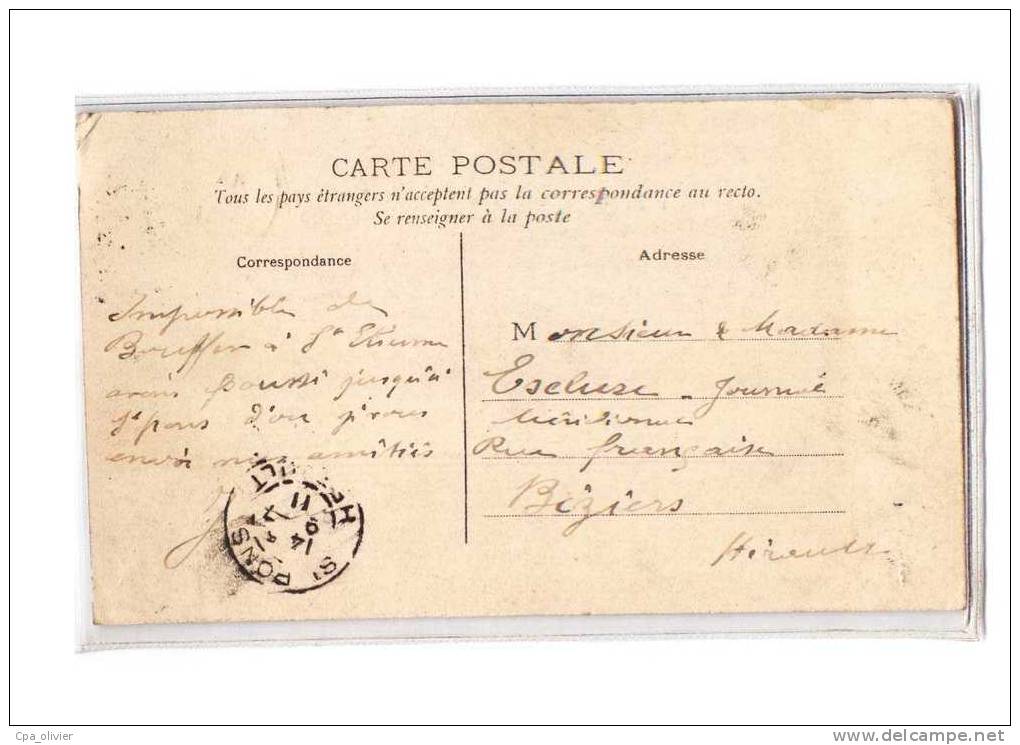 CARTE POSTALE
Tous les pays étrangers n'acceptent pas la correspondance au recto.
Se renseigner à la poste
Correspondance
Impossible de
Bouffer à St Etienne
avons poussé jusqu'à
St pons d'où je vous
envoi mes amitiés
J
Adresse
Monsieur & Madame
Escluse - Journal
Méridional
Rue française
Béziers
Hérault
ST PONS HERAULT
Cpa_olivier
www.delcampe.net